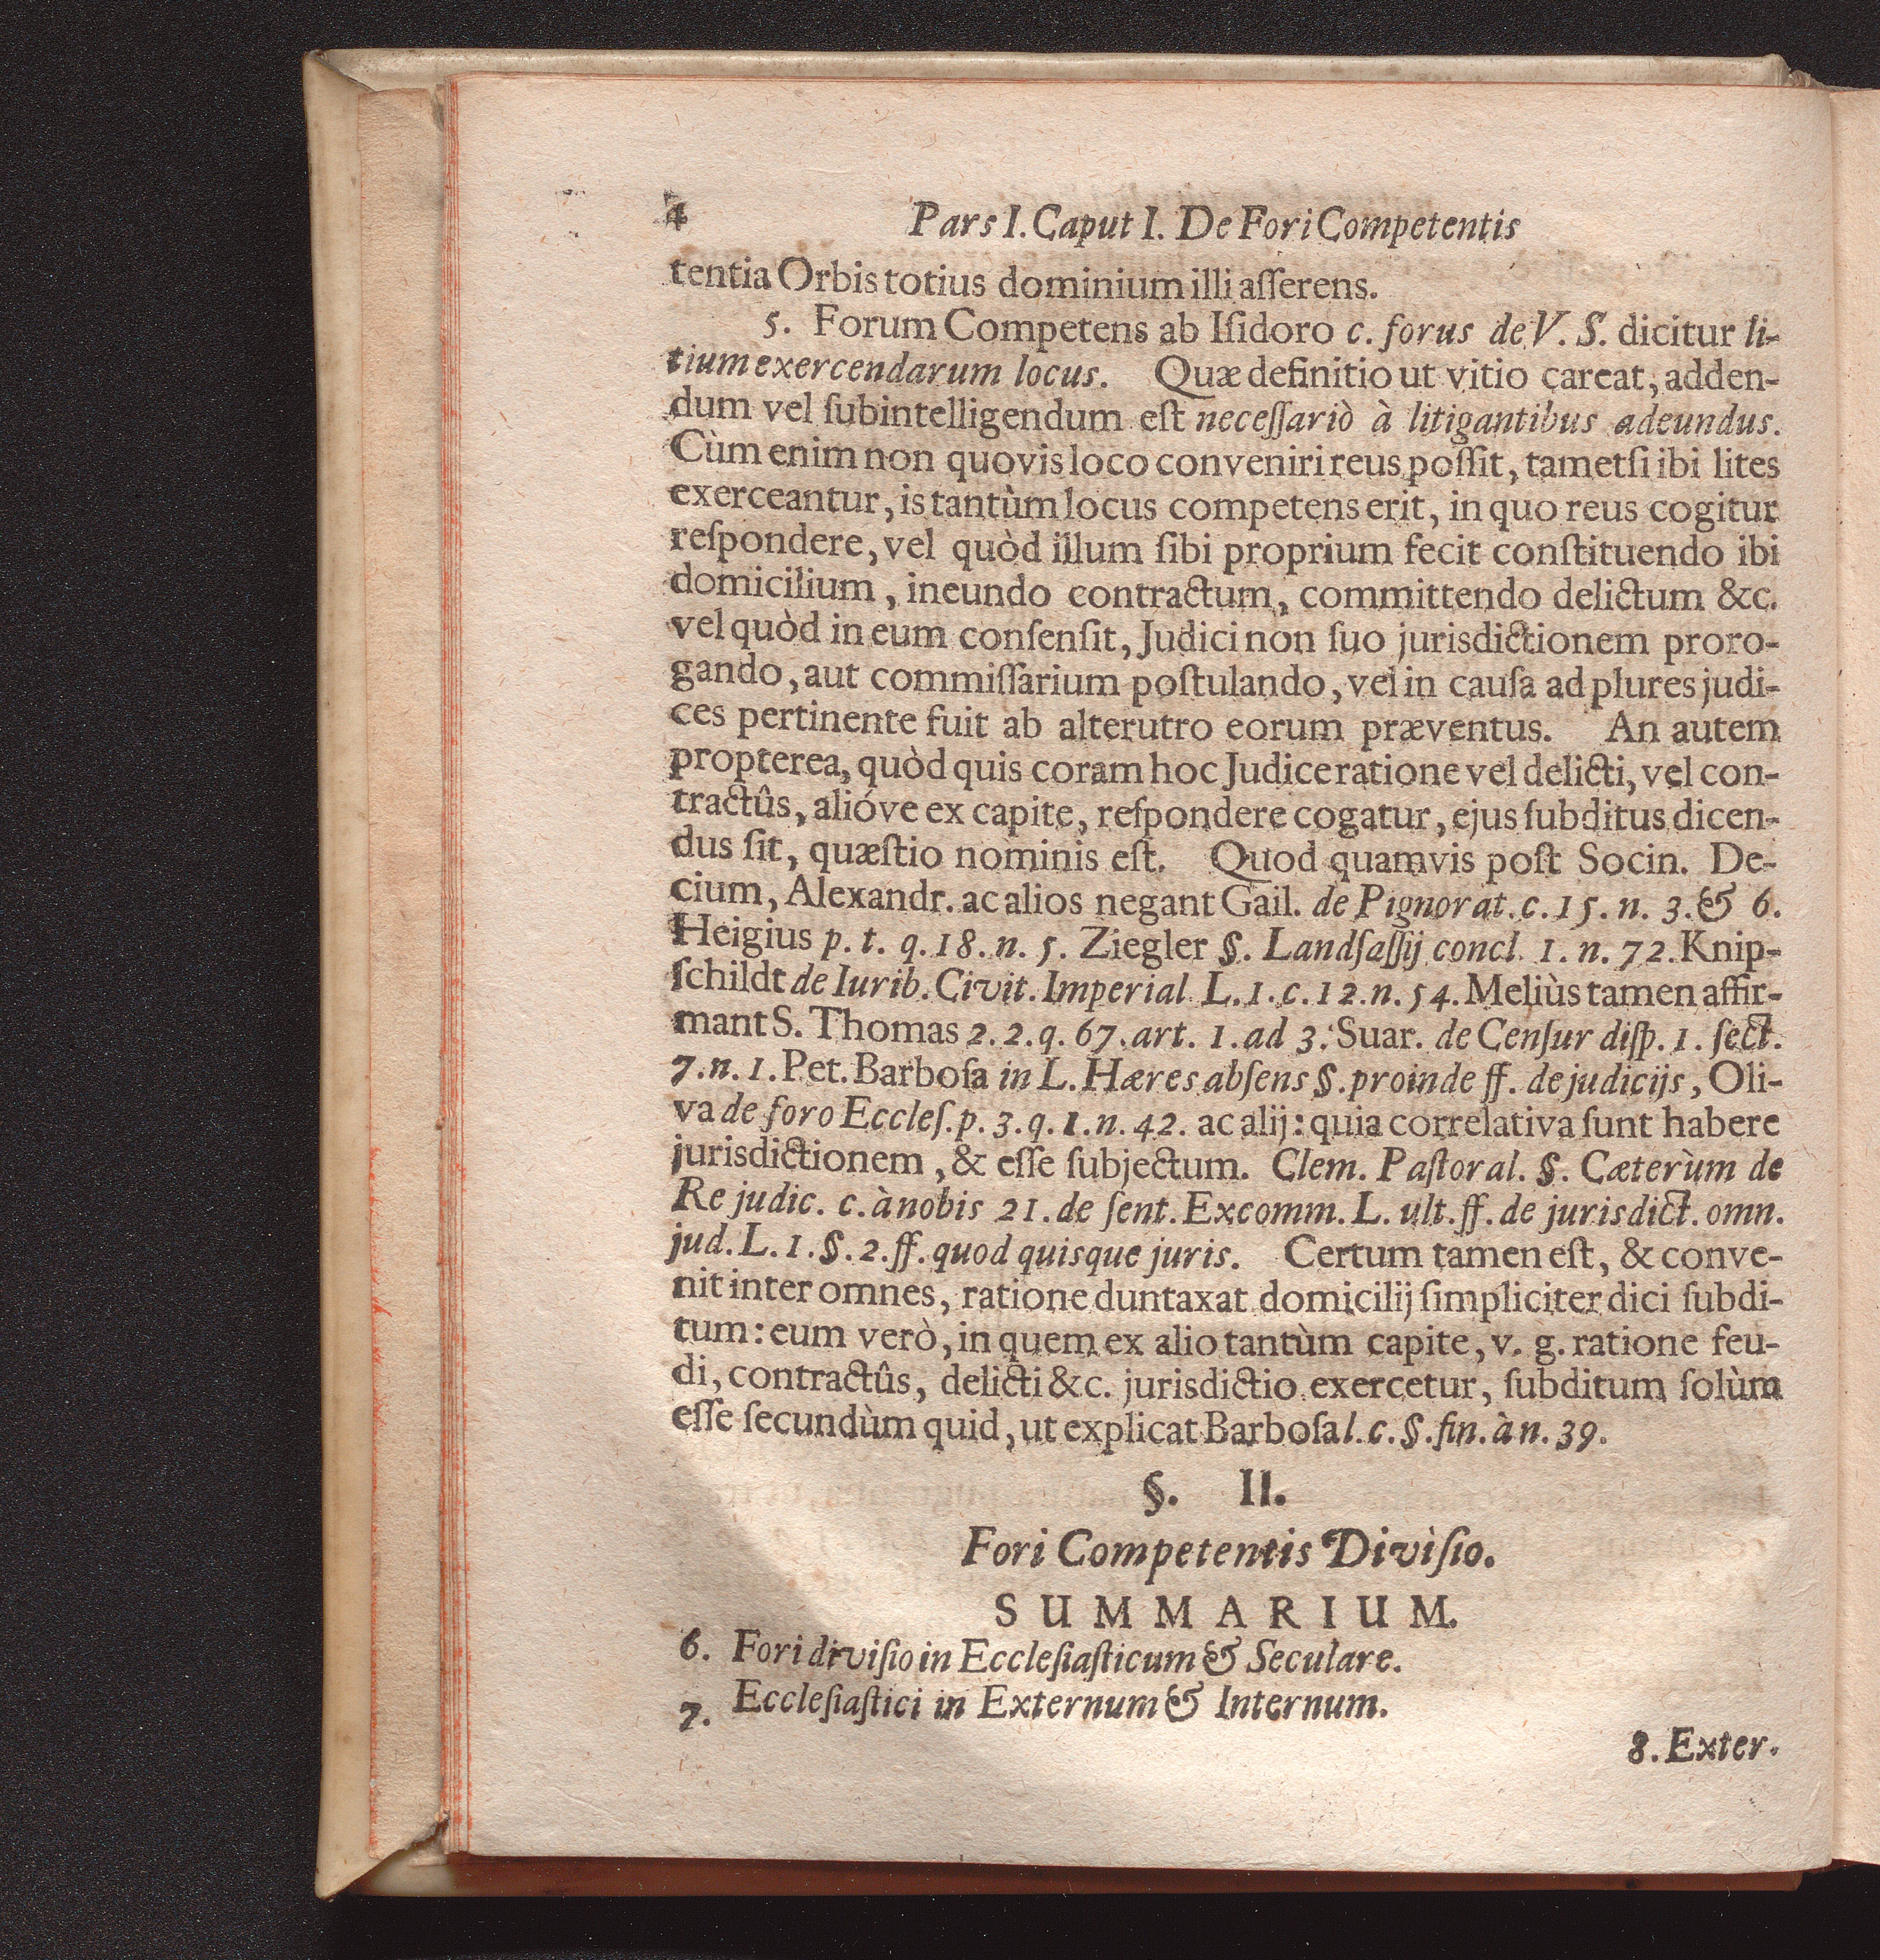 4 Pars I. Caput I. De Fori Competentis
tentia Orbis totius dominium illi aſſerens.
5. Forum Competens ab Iſidoro c. forus de V. S. dicitur li-
tium exercendarum locus. Quæ definitio ut vitio careat, adden-
dum vel ſubintelligendum eſt neceſſariò à litigantibus adeundus.
Cùm enim non quovis loco conveniri reus poſſit, tametſi ibi lites
exerceantur, is tantùm locus competens erit, in quo reus cogitur
reſpondere, vel quòd illum ſibi proprium fecit conſtituendo ibi
domicilium, ineundo contractum, committendo delictum &c.
vel quòd in eum conſenſit, Judici non ſuo jurisdictionem proro-
gando, aut commiſſarium poſtulando, vel in cauſa ad plures judi-
ces pertinente fuit ab alterutro eorum præventus. An autem
propterea, quòd quis coram hoc Judice ratione vel delicti, vel con-
tractûs, alióve ex capite, reſpondere cogatur, ejus ſubditus dicen-
dus ſit, quæſtio nominis eſt. Quod quamvis poſt Socin. De-
cium, Alexandr. ac alios negant Gail. de Pignorat. c. 15. n. 3. & 6.
Heigius p. t. q. 18. n. 5. Ziegler §. Landſaſſij concl. 1. n. 72. Knip-
ſchildt de Iurib. Civit. Imperial. L. 1. c. 12. n. 54. Meliùs tamen affir-
mant S. Thomas 2. 2. q. 67. art. 1. ad 3. Suar. de Cenſur diſp. 1. ſect.
7. n. 1. Pet. Barboſa in L. Hæres abſens §. proinde ff. de judicijs, Oli-
va de foro Eccleſ. p. 3. q. 1. n. 42. ac alij: quia correlativa ſunt habere
jurisdictionem, & eſſe ſubjectum. Clem. Paſtoral. §. Cæterùm de
Re judic. c. à nobis 21. de ſent. Excomm. L. ult. ff. de jurisdict. omn.
jud. L. 1. §. 2. ff. quod quisque juris. Certum tamen eſt, & conve-
nit inter omnes, ratione duntaxat domicilij ſimpliciter dici ſubdi-
tum: eum verò, in quem ex alio tantùm capite, v. g. ratione feu-
di, contractûs, delicti &c. jurisdictio exercetur, ſubditum ſolùm
eſſe ſecundùm quid, ut explicat Barboſa l. c. §. fin. à n. 39.
§. II.
Fori Competentis Diviſio.
SUMMARIUM.
6. Fori diviſio in Eccleſiaſticum & Seculare.
7. Eccleſiaſtici in Externum & Internum.
8. Exter-